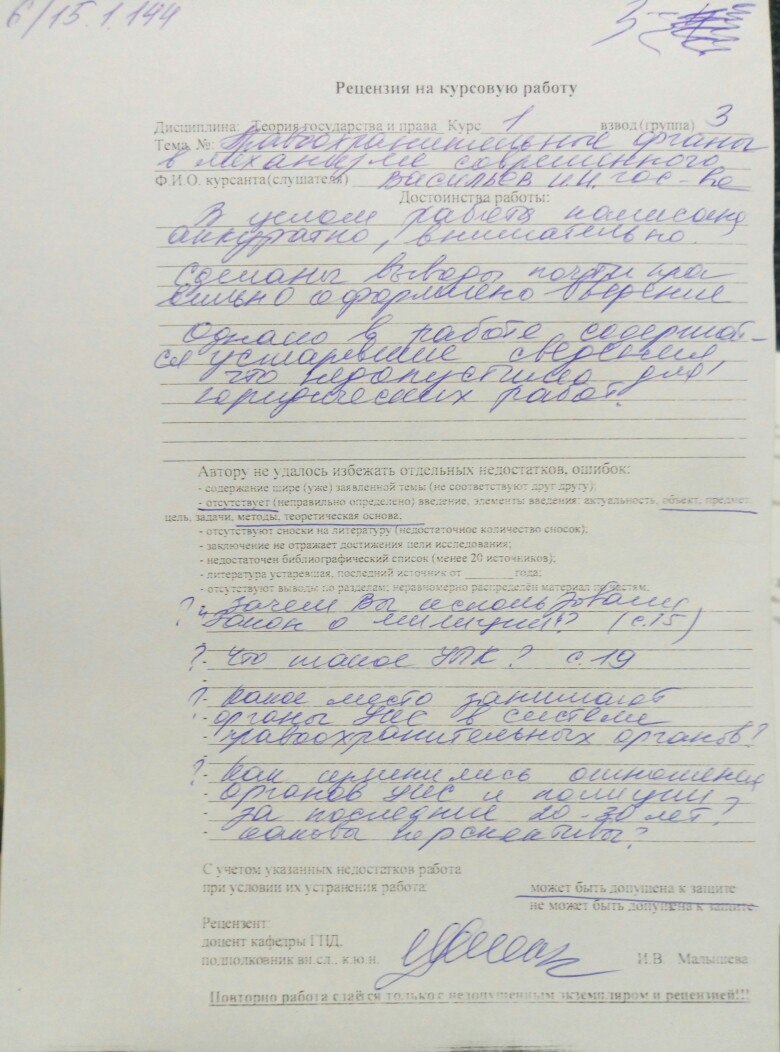 6/15.1.144
3
Рецензия на курсовую работу
Дисциплина: Теория государства и права Курс 1 взвод (группа) 3
Тема №: Правоохранительные органы
в механизме современного
Ф.И.О. курсанта(слушателя) Васильев И.И. гос-ва
Достоинства работы:
В целом работа написана
аккуратно, внимательно.
Сделаны выводы почти пра
вильно оформлено введение
Однако в работе содержат-
ся устаревшие сведения,
что недопустимо для
юридических работ.
Автору не удалось избежать отдельных недостатков, ошибок:
- содержание шире (уже) заявленной темы (не соответствуют друг другу);
- отсутствует (неправильно определено) введение, элементы введения: актуальность, объект, предмет,
цель, задачи, методы, теоретическая основа;
- отсутствуют сноски на литературу (недостаточное количество сносок);
- заключение не отражает достижения цели исследования;
- недостаточен библиографический список (менее 20 источников);
- литература устаревшая, последний источник от ________ года;
- отсутствуют выводы по разделам; неравномерно распределён материал по частям.
? - Зачем Вы использовали
Закон о милиции? (с.15)
? - Что такое УПК? с.19
? - Какое место занимают
- органы УИС в системе
- правоохранительных органов?
? - Как изменились отношения
- органов УИС и полиции
- за последние 20-30 лет?
- Каковы перспективы?
С учетом указанных недостатков работа
при условии их устранения работа: может быть допущена к защите
не может быть допущена к защите.
Рецензент:
доцент кафедры ГПД,
подполковник вн.сл., к.ю.н. И.В. Малышева
Повторно работа сдаётся только с недопущенным экземпляром и рецензией!!!